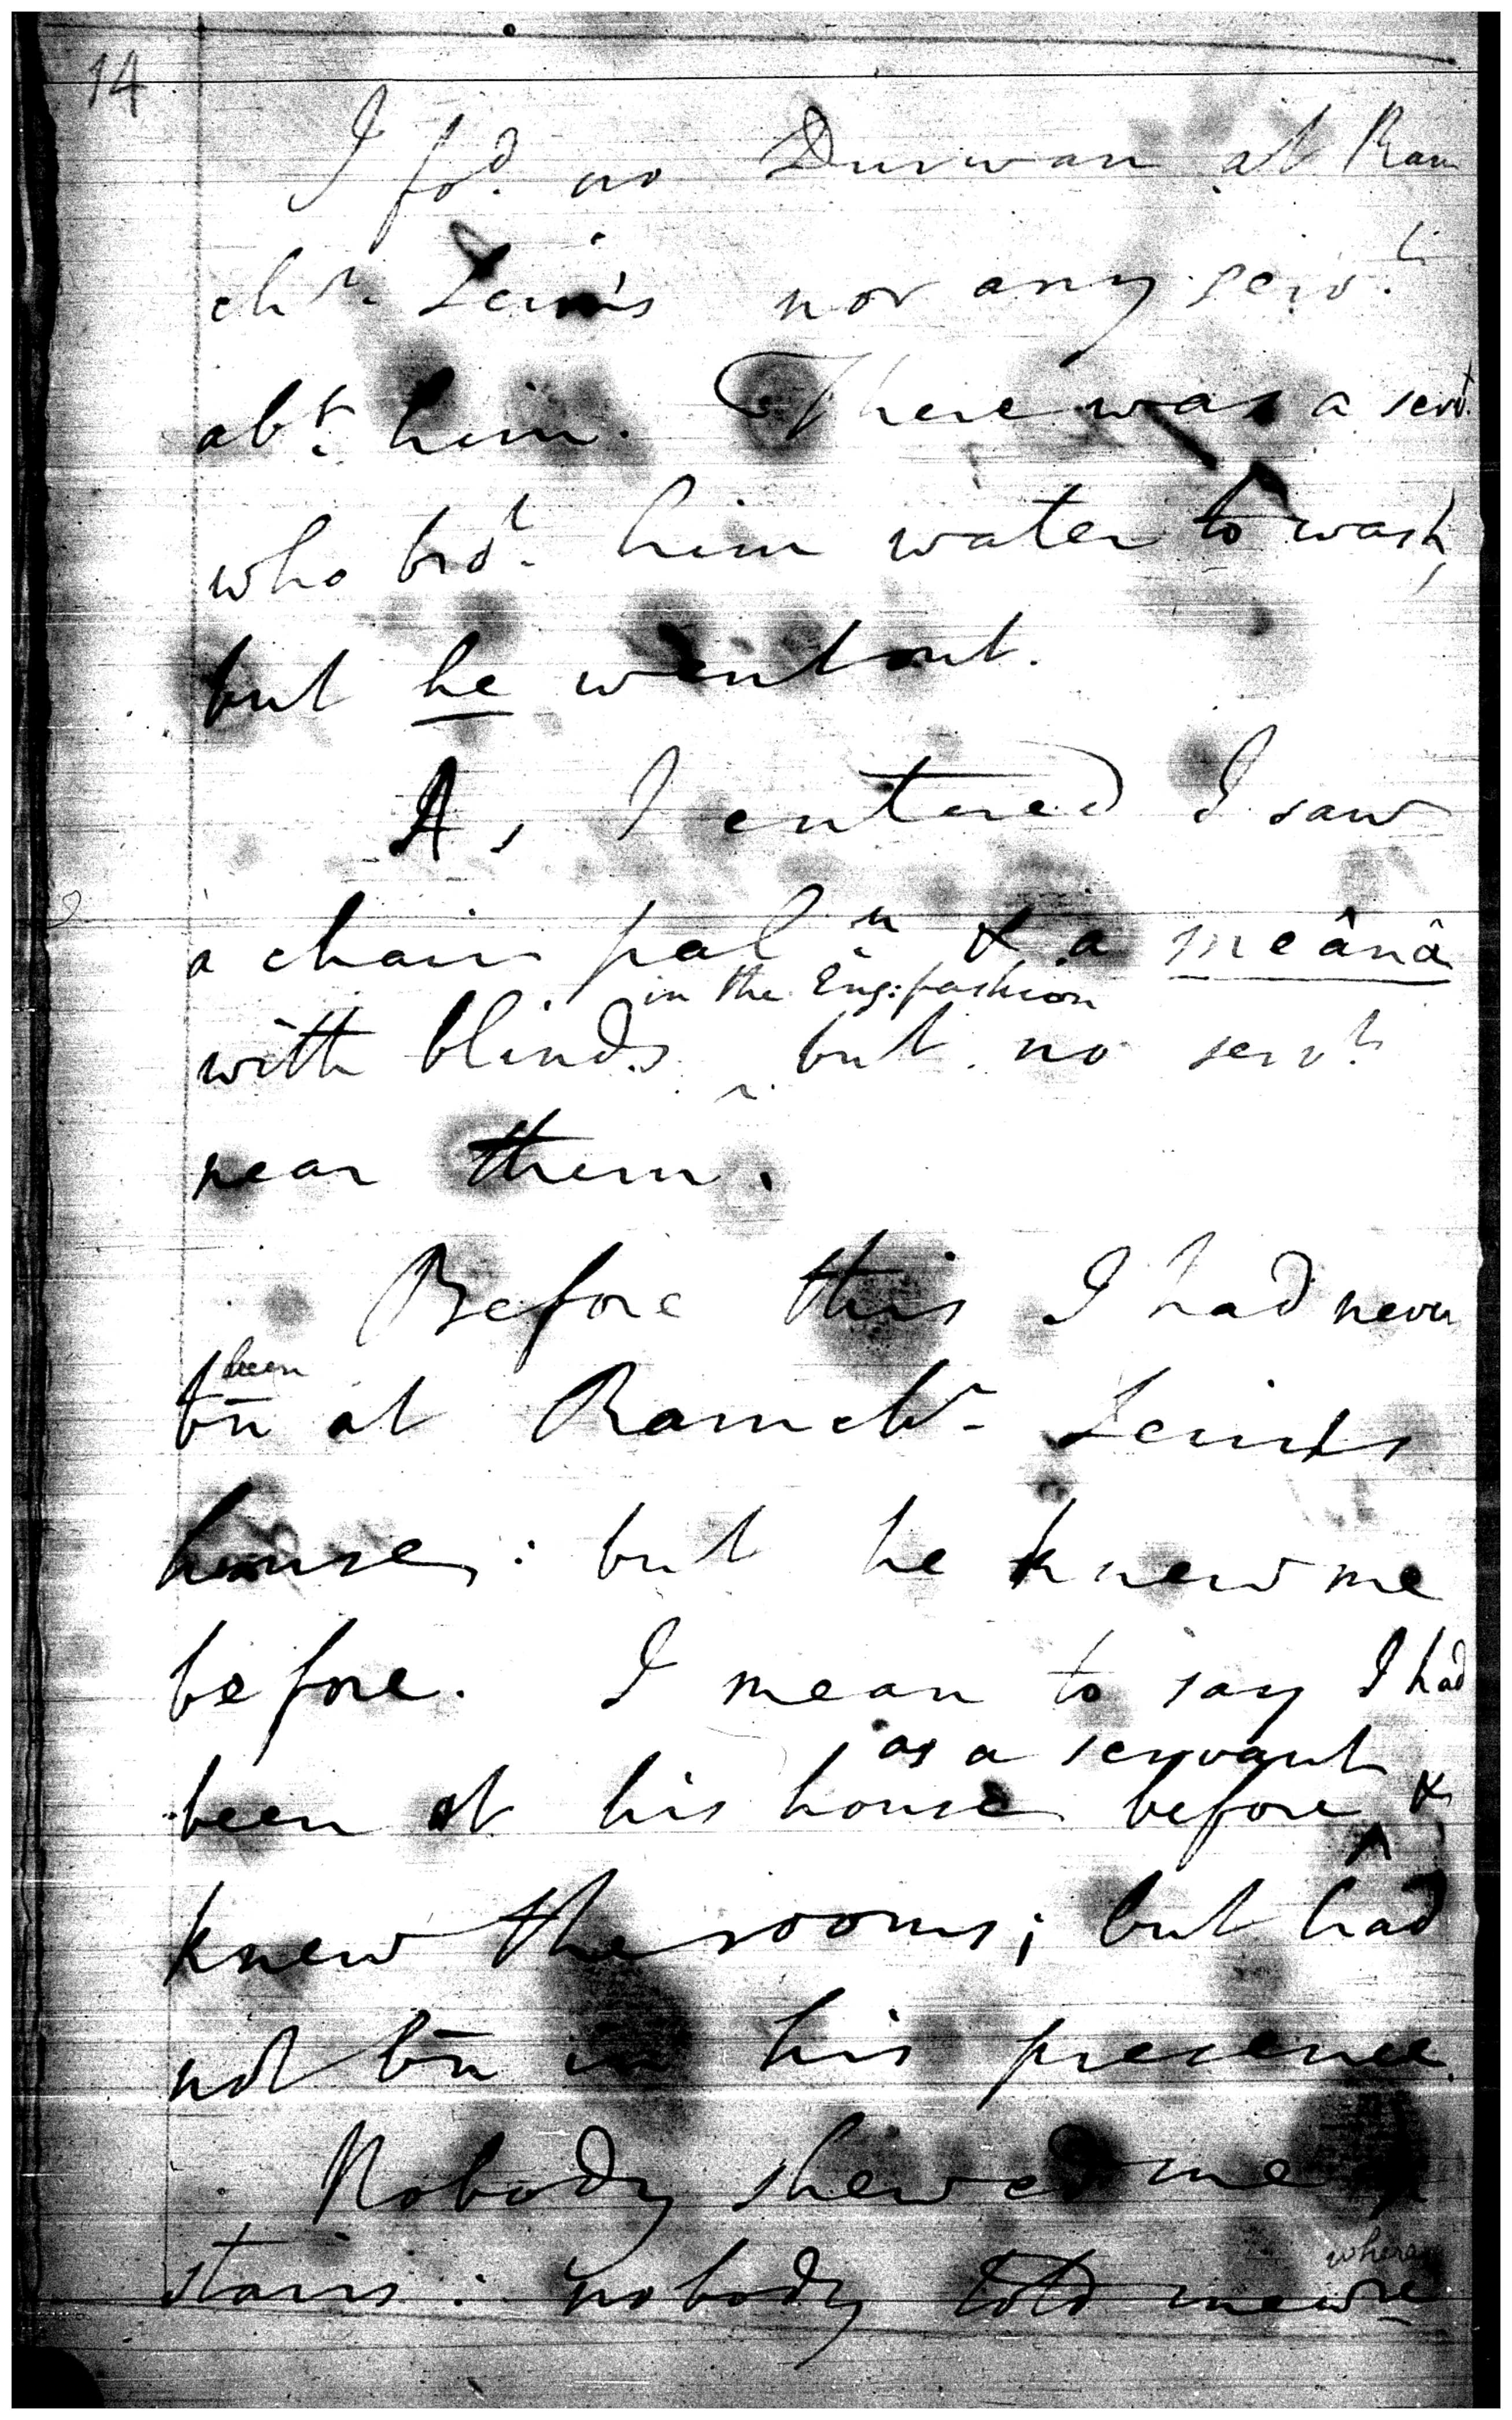 14
I fod. no Durwan at Ram
chr. Sein's nor any servts.
abt. him. There was a servt.
who brot. him water to wash,
but he went out.
As I entered I saw
a chair paln. & a meânâ
in the Eng: fashion
with blinds ^ but no servts.
near them.
Before this I had never
been
bn at Ramchr. Sein's
house: but he knew me
before. I mean to say I had
as a servant
been at his house before ^ &
knew the rooms; but had
not bn in his presence.
Nobody shewed me
stairs: nobody told me wre
where